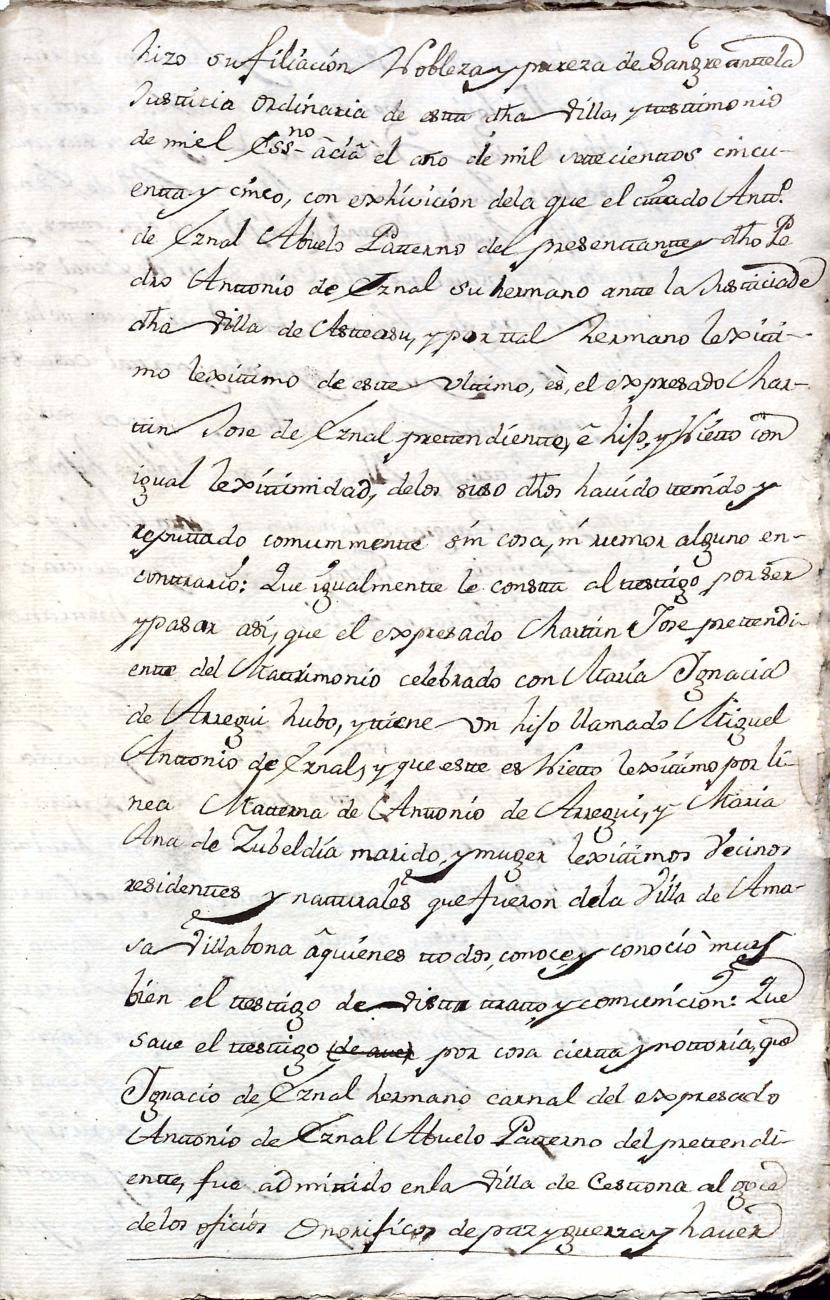 hizo su filiación Nobleza y pureza de Sangre antela
Justicia Ordinaria de esta dha Villa, y testimonio
de miel Essno âcia el año de mil setecientos cincu-
enta y cinco, con exhivición dela que el citado Anttº
de Eznal Abuelo Patterno del presentante y dho Pe
dro Anttonio de Eznal su hermano ante la Justicia de
dha Villa de Asteasu, y por tal hermano lexiti-
mo lexitimo de este Vltimo, ès, el expresado Mar-
tin Jose de Eznal prettendiente, ê hijo, y Nietto con
igual lexitimidad, delos suso dhos havido ttenido y
reputtado comunmente sin cosa, ni rumor alguno en-
conttrario: Que igualmente le constta al testigo por ser
y pasar asi, que el expresado Martin Jose prettendi-
ente del Mattrimonio celebrado con Maria Ygnacia
de Arregui hubo, y tiene Un hijo llamado Miguel
Anttonio de Eznal, y que este es Nietto lexitimo por li-
nea Matterna de Anttonio de Arregui, y Maria
Ana de Zubeldia marido, y muger lexitimos Vecinos
residenttes y natturales que fueron dela Villa de Ama-
sa Villabona âquienes ttodos, conoce, y conociò muy
bien el testigo de vista tratto y comunicion: Que
save el testigo (de aver) por cosa cierta y nottoria, que
Ygnacio de Eznal hermano carnal del expresado
Anttonio de Eznal Abuelo Patterno del prettendi-
ente, fue admitido enla Villa de Cestona al goce
delos oficios Onorificos de paz y guerra y haver